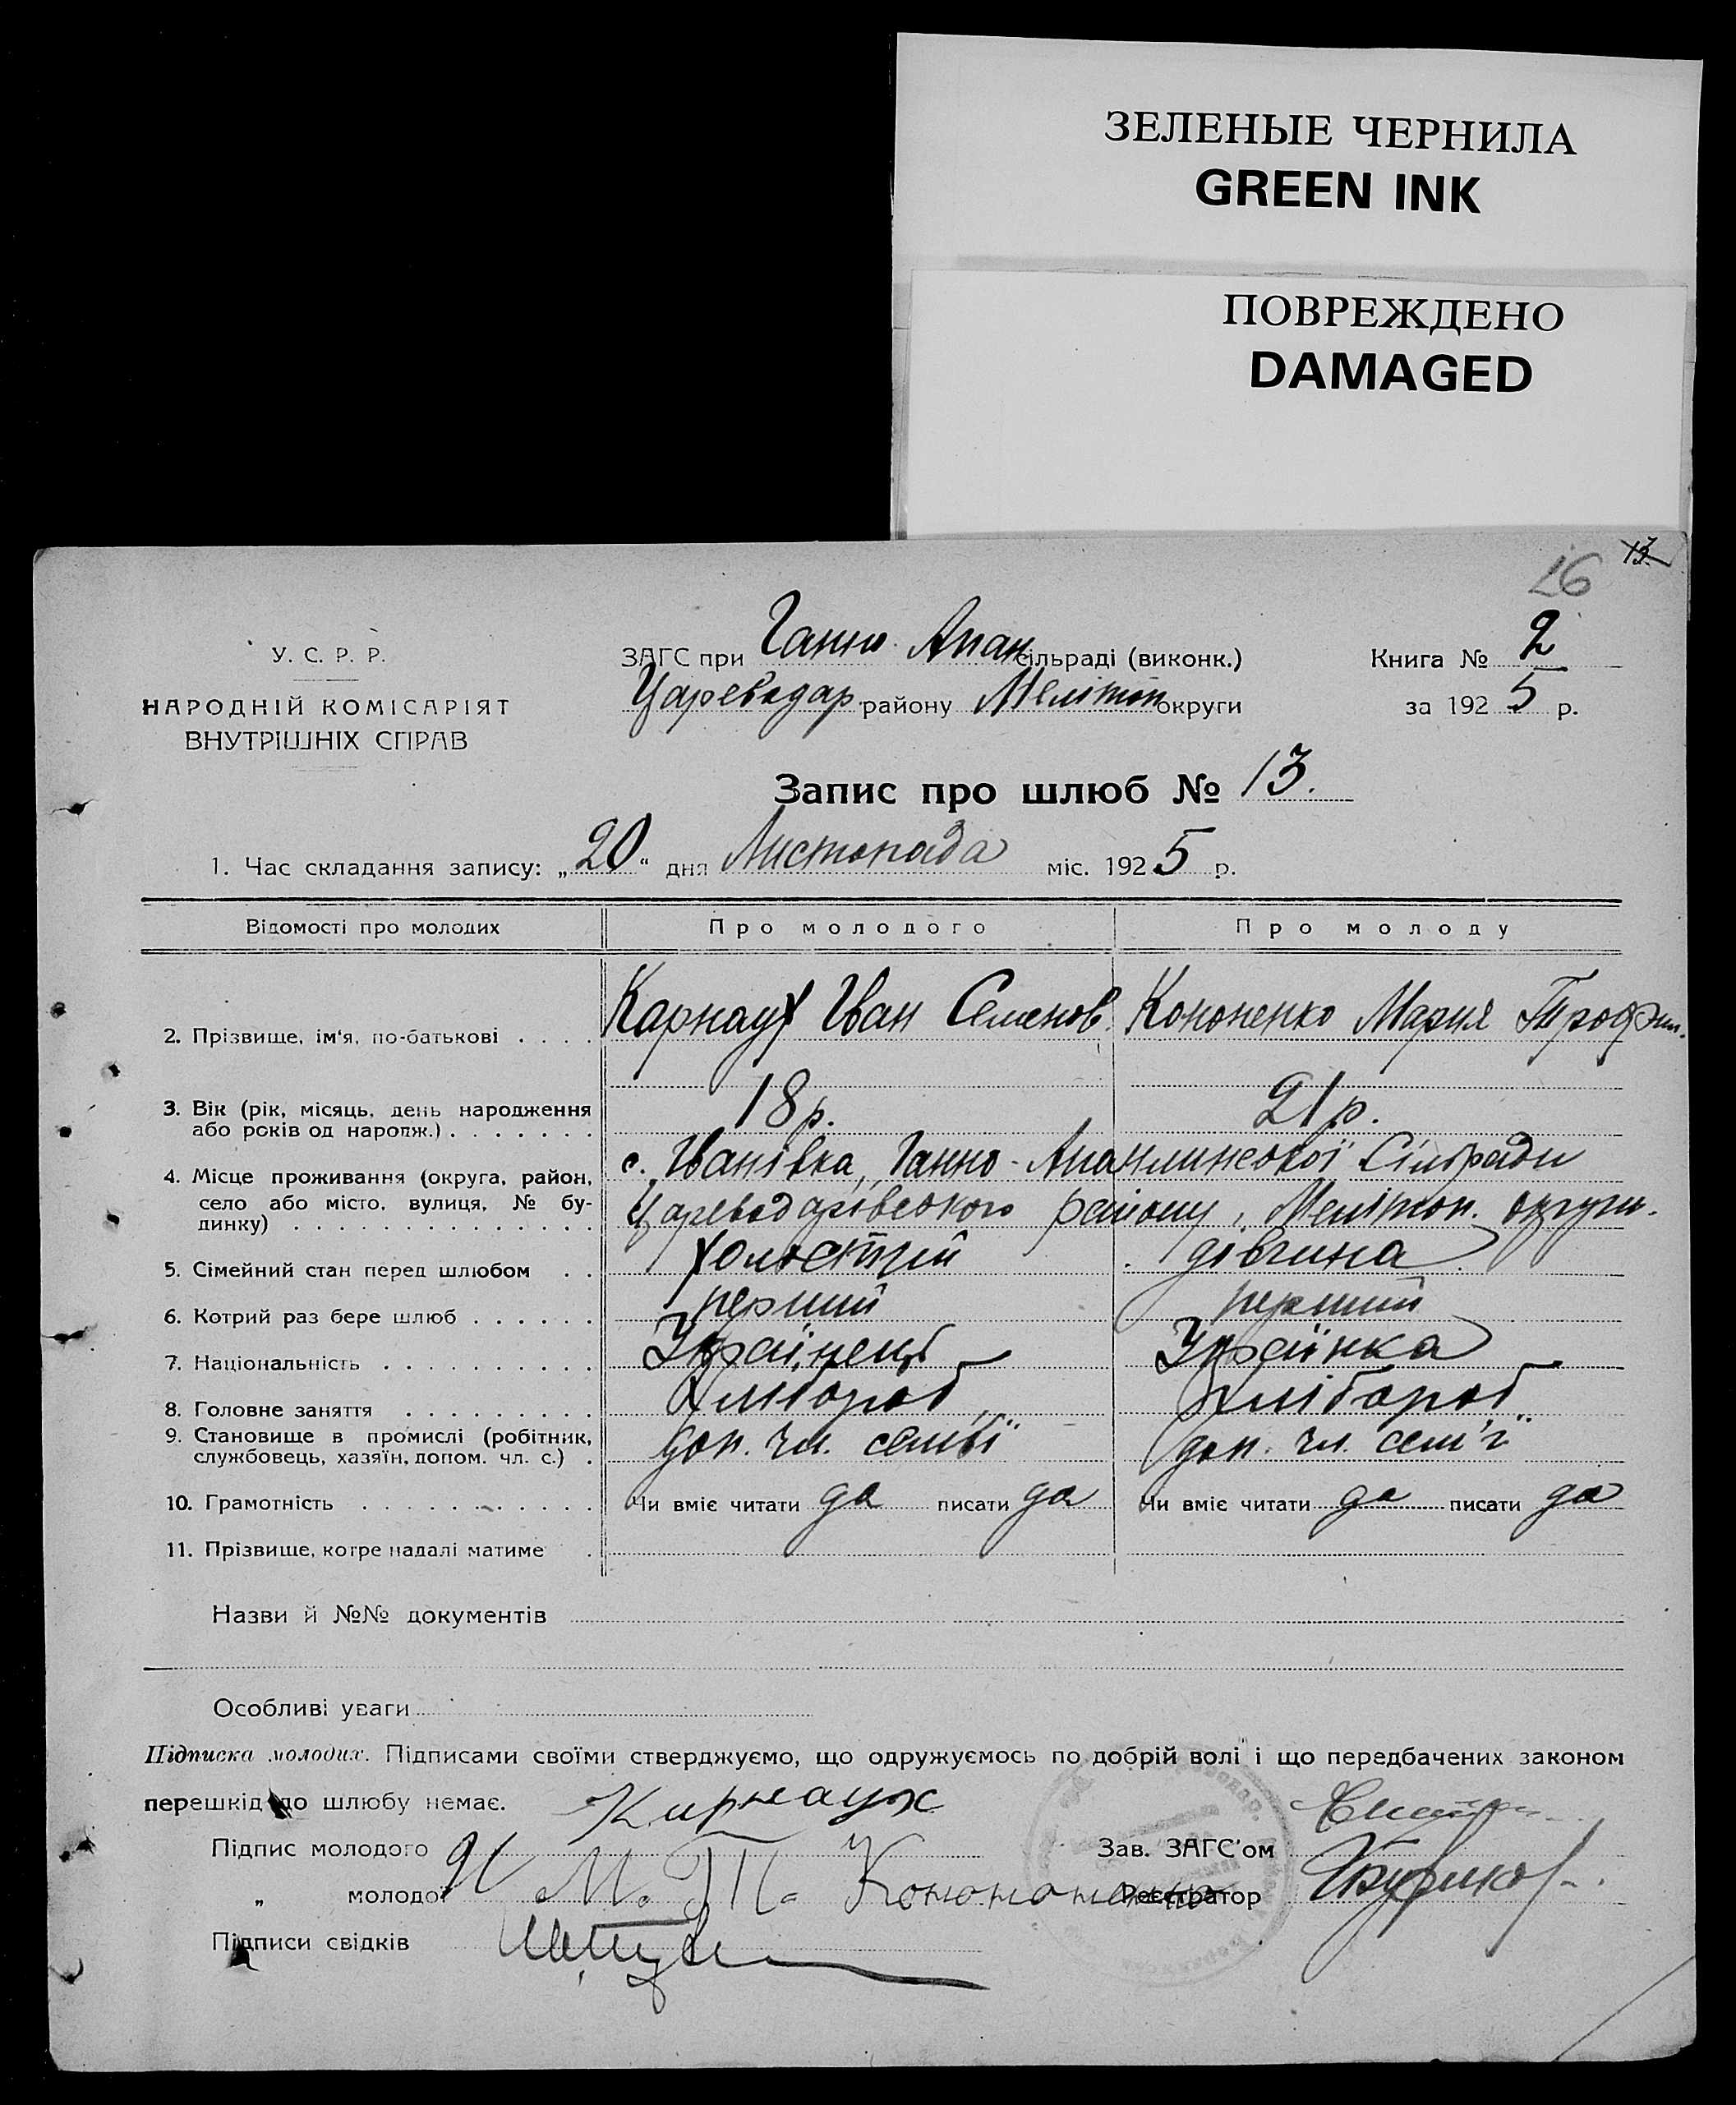 ЗЕЛЕНЫЕ ЧЕРНИЛА
GREEN INK
ПОВРЕЖДЕНО
DAMAGED
26 13
У. С. Р. Р.
НАРОДНІЙ КОМІСАРІЯТ
ВНУТРІШНІХ СПРАВ
ЗАГС при Ганно Апан сільраді (виконк.)
Цареводар. району Мелітоп округи
Книга № 2
за 1925 р.
Запис про шлюб № 13.
1. Час складання запису: „20“ дня Листопада міс. 1925 р.
Відомості про молодих Про молодого Про молоду
2. Прізвище, ім'я, по-батькові . . . . Карнаух Іван Семенов. Кононенко Мария Трофим.
3. Вік (рік, місяць, день народження
або років од нарожд.) . . . . . . . 18 р. 21 р.
4. Місце проживання (округа, район,
село або місто, вулиця, № бу-
динку) . . . . . . . . . . . . . .
с. Іванівка, Ганно-Апанлинської Сільради
Цареводарівського району, Мелітоп. округи.
5. Сімейний стан перед шлюбом . . холостий дівчина
6. Котрий раз бере шлюб . . . . . . перший перший
7. Національність . . . . . . . . . . Українець Українка
8. Головне заняття . . . . . . . . . Хлібороб Хлібороб
9. Становище в промислі (робітник,
службовець, хазяїн, допом. чл. с.) . доп. чл. семьї доп. чл. сем'ї
10. Грамотність . . . . . . . . . . . Чи вміє читати да писати да Чи вміє читати да писати да
11. Прізвище, котре надалі матиме .
Назви й №№ документів
Особливі уваги
Підписка молодих. Підписами своїми стверджуємо, що одружуємось по добрій волі і що передбачених законом
перешкід до шлюбу немає.
Підпис молодого Карнаух
„ молодої М. Т. Кононенко
Підписи свідків
Зав. ЗАГС'ом
Реєстратор